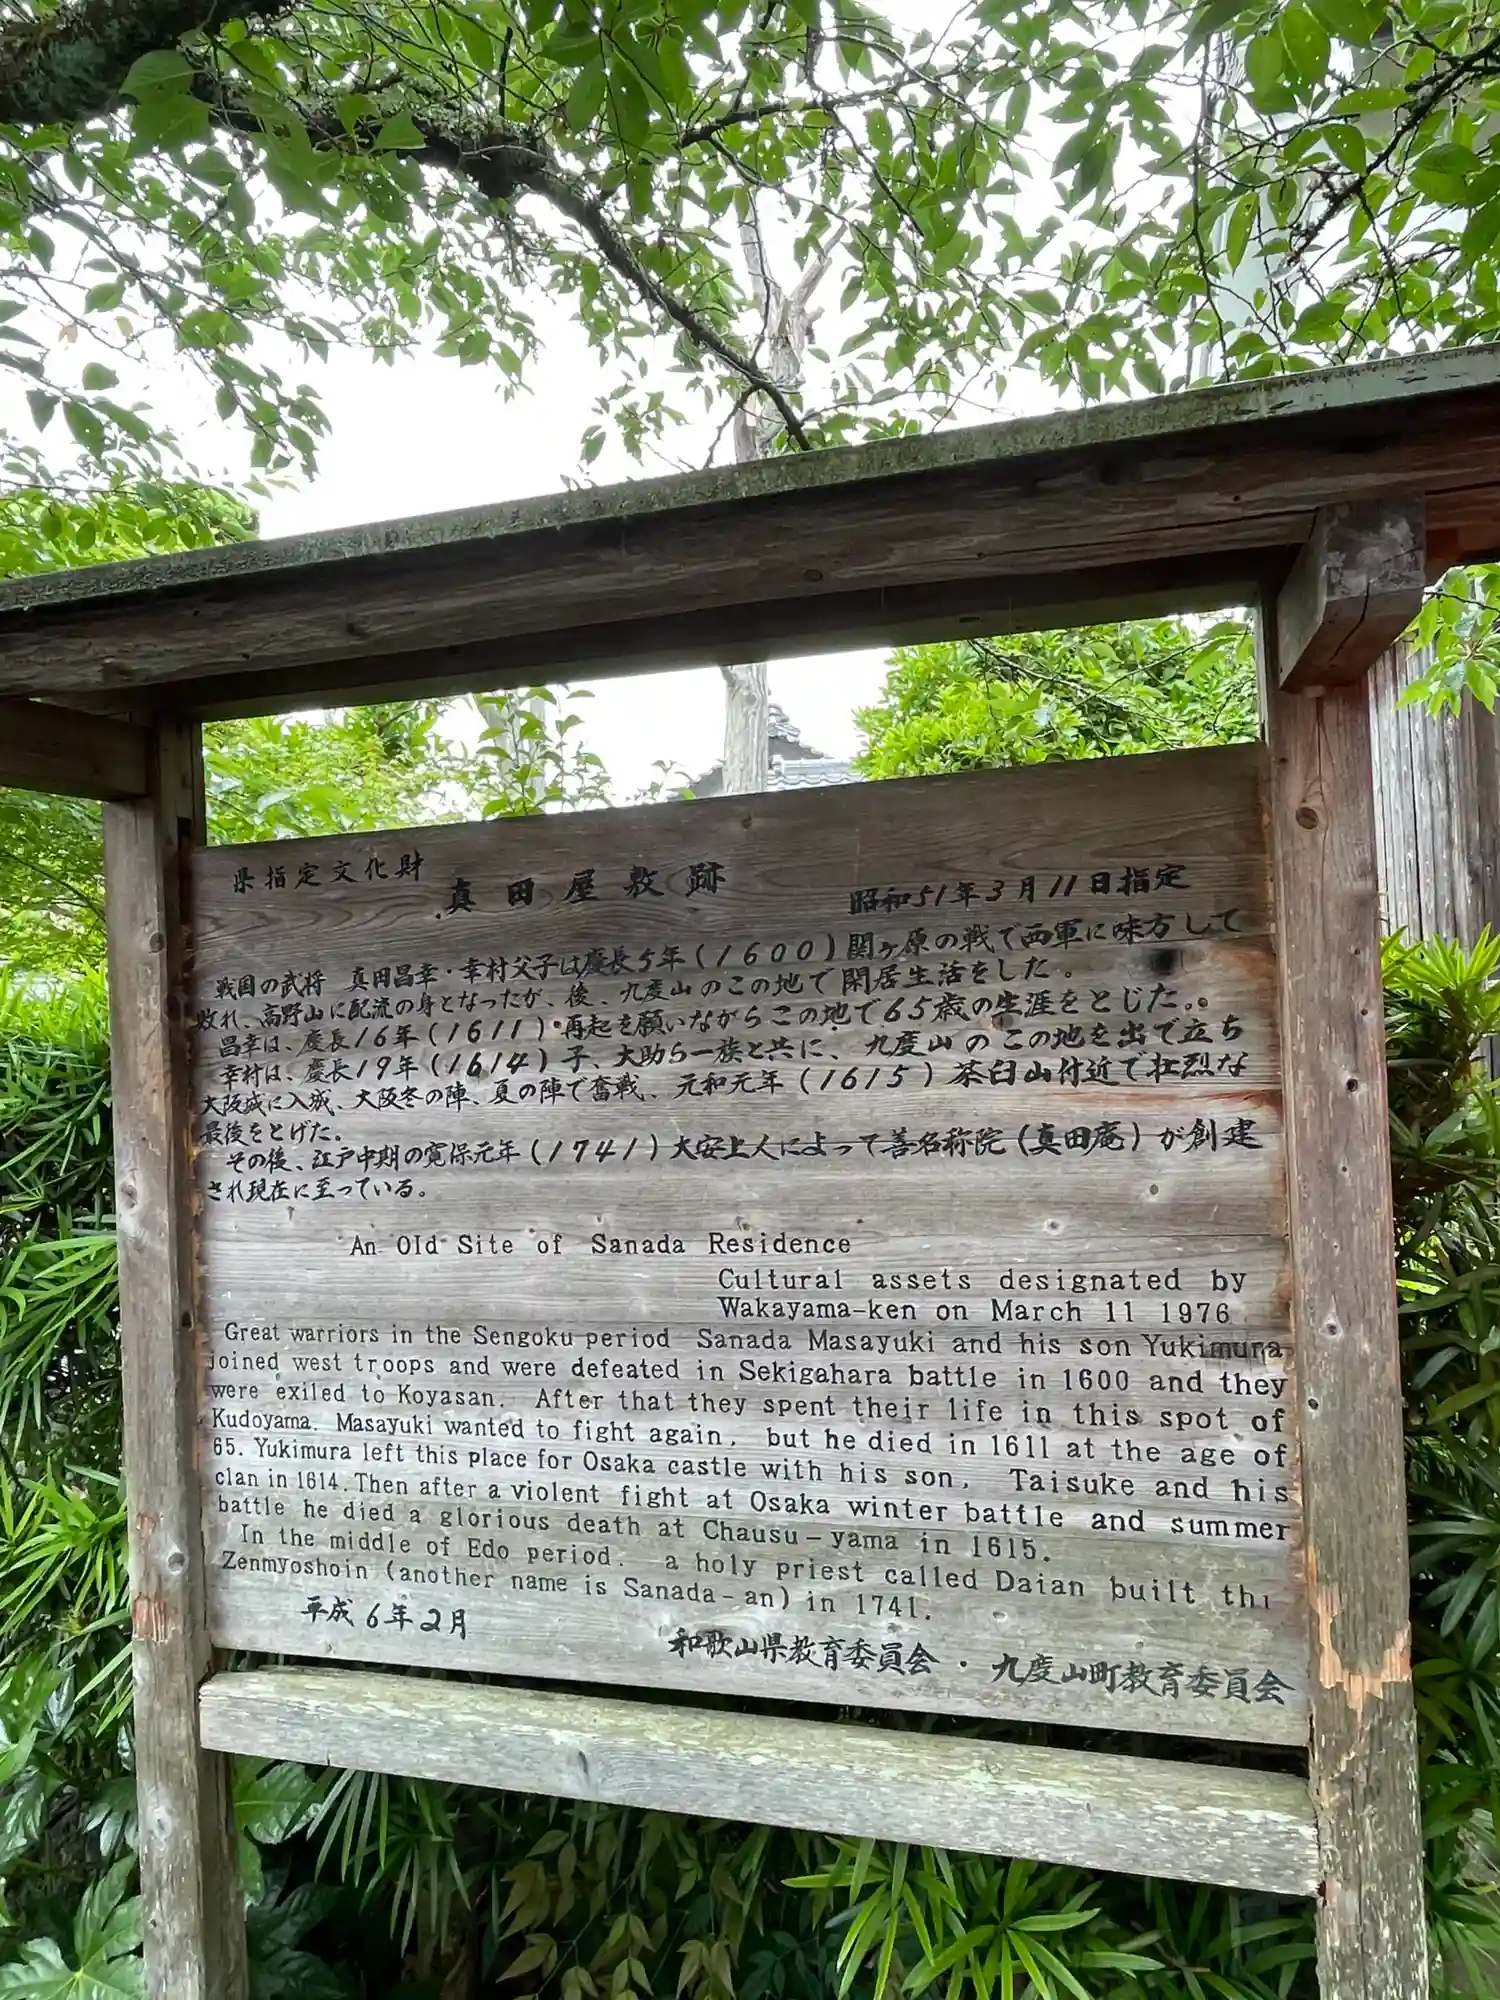 県指定文化財
真田屋敷跡
昭和51年3月11日指定
戦国の武将 真田昌幸・幸村父子は慶長5年(1600)関ヶ原の戦で西軍に味方して
敗れ、高野山に配流の身となったが、後、九度山のこの地で閑居生活をした。
昌幸は、慶長16年(1611)再起を願いながらこの地で65歳の生涯をとじた。
幸村は、慶長19年(1614)子、大助ら一族と共に、九度山のこの地を出て立ち
大阪城に入城、大阪冬の陣、夏の陣で奮戦、元和元年(1615)茶臼山付近で壮烈な
最後をとげた。
その後、江戸中期の寛保元年(1741)大安上人によって善名称院(真田庵)が創建
され現在に至っている。
An Old Site of Sanada Residence
Cultural assets designated by
Wakayama-ken on March 11 1976
Great warriors in the Sengoku period Sanada Masayuki and his son Yukimura
joined west troops and were defeated in Sekigahara battle in 1600 and they
were exiled to Koyasan. After that they spent their life in this spot of
Kudoyama. Masayuki wanted to fight again, but he died in 1611 at the age of
65. Yukimura left this place for Osaka castle with his son, Taisuke and his
clan in 1614. Then after a violent fight at Osaka winter battle and summer
battle he died a glorious death at Chausu-yama in 1615.
In the middle of Edo period. a holy priest called Daian built the
Zenmyoshoin (another name is Sanada-an) in 1741.
平成6年2月
和歌山県教育委員会・九度山町教育委員会